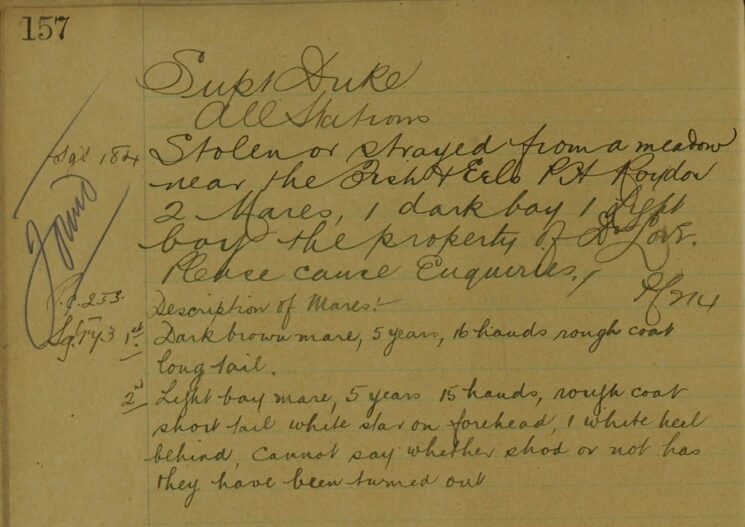 157
Supt Duke
All Stations
Sgt 184
Stolen or strayed from a meadow
near the Fish & Eels P H Roydon
2 Mares, 1 dark bay 1 light
bay the property of Dr Love.
Please cause Enquiries.
Found
P.C. 253.
Description of Mares:-
Sgt 143
1st Dark brown mare, 5 years, 16 hands rough coat
long tail.
2d Light bay mare, 5 years 15 hands, rough coat
short tail white star on forehead, 1 white heel
behind, Cannot say whether shod or not has
they have been turned out